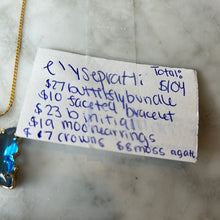 elysepratti Total:
$104
$27 butterfly bundle
$10 faceted bracelet
$23 b initial
$19 moonearrings
$17 crowns $8 moss agate